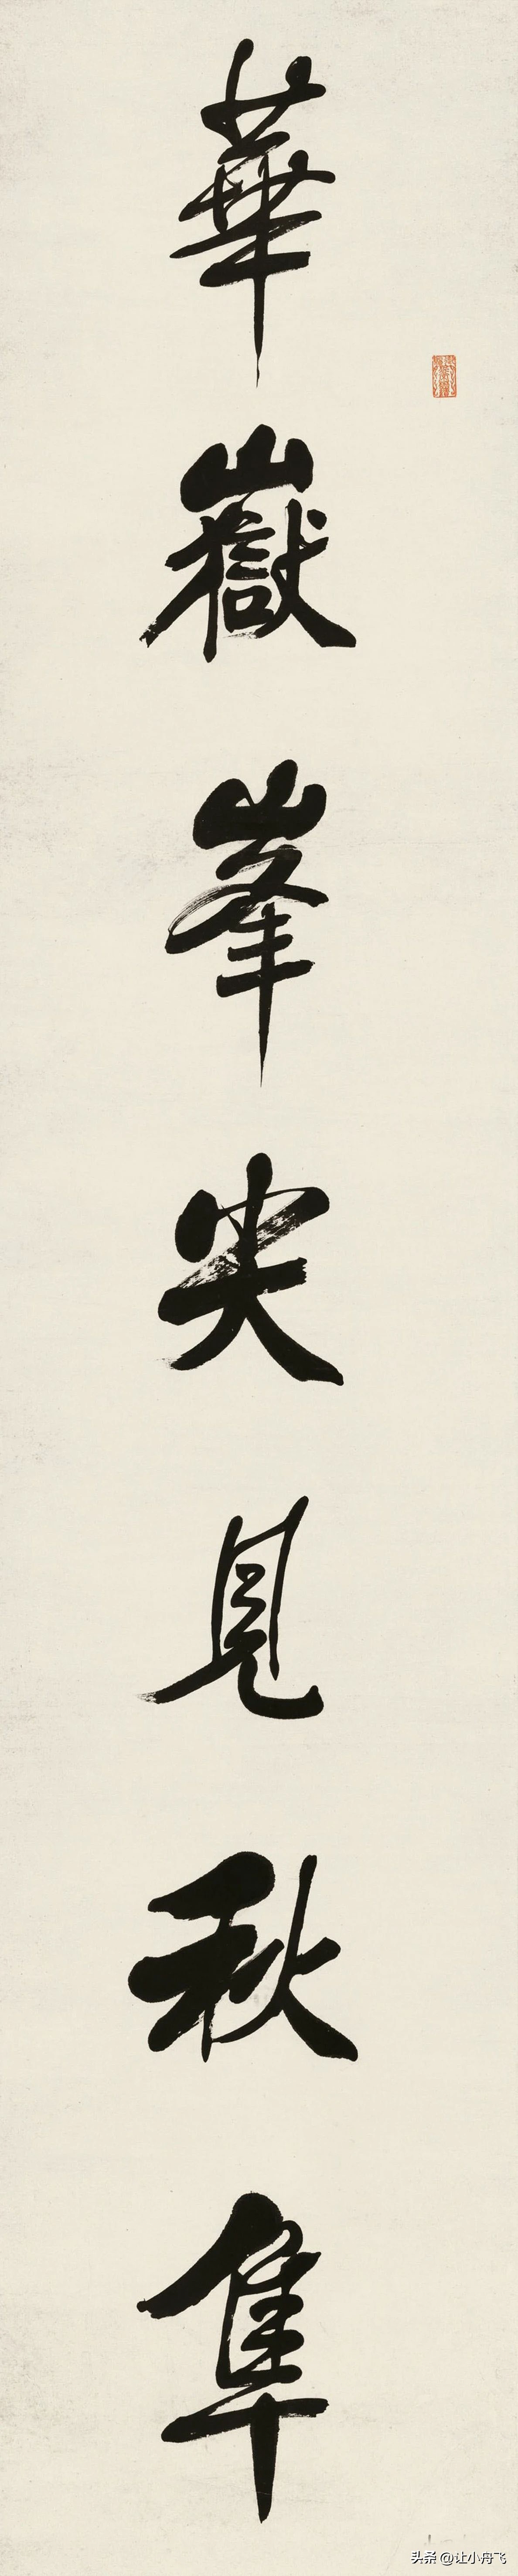 華嶽峯尖見秋隼
头条 @让小舟飞